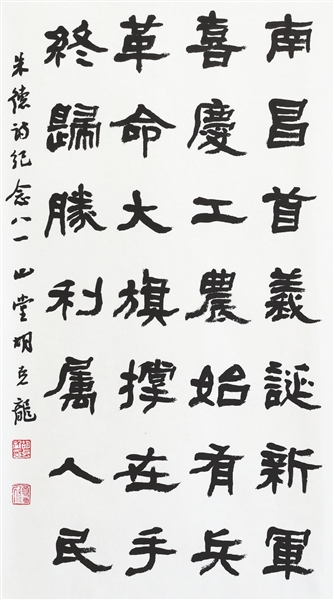 南昌首義誕新軍
喜慶工農始有兵
革命大旗撑在手
終歸勝利属人民
朱德詩紀念八一 山堂 胡克龍